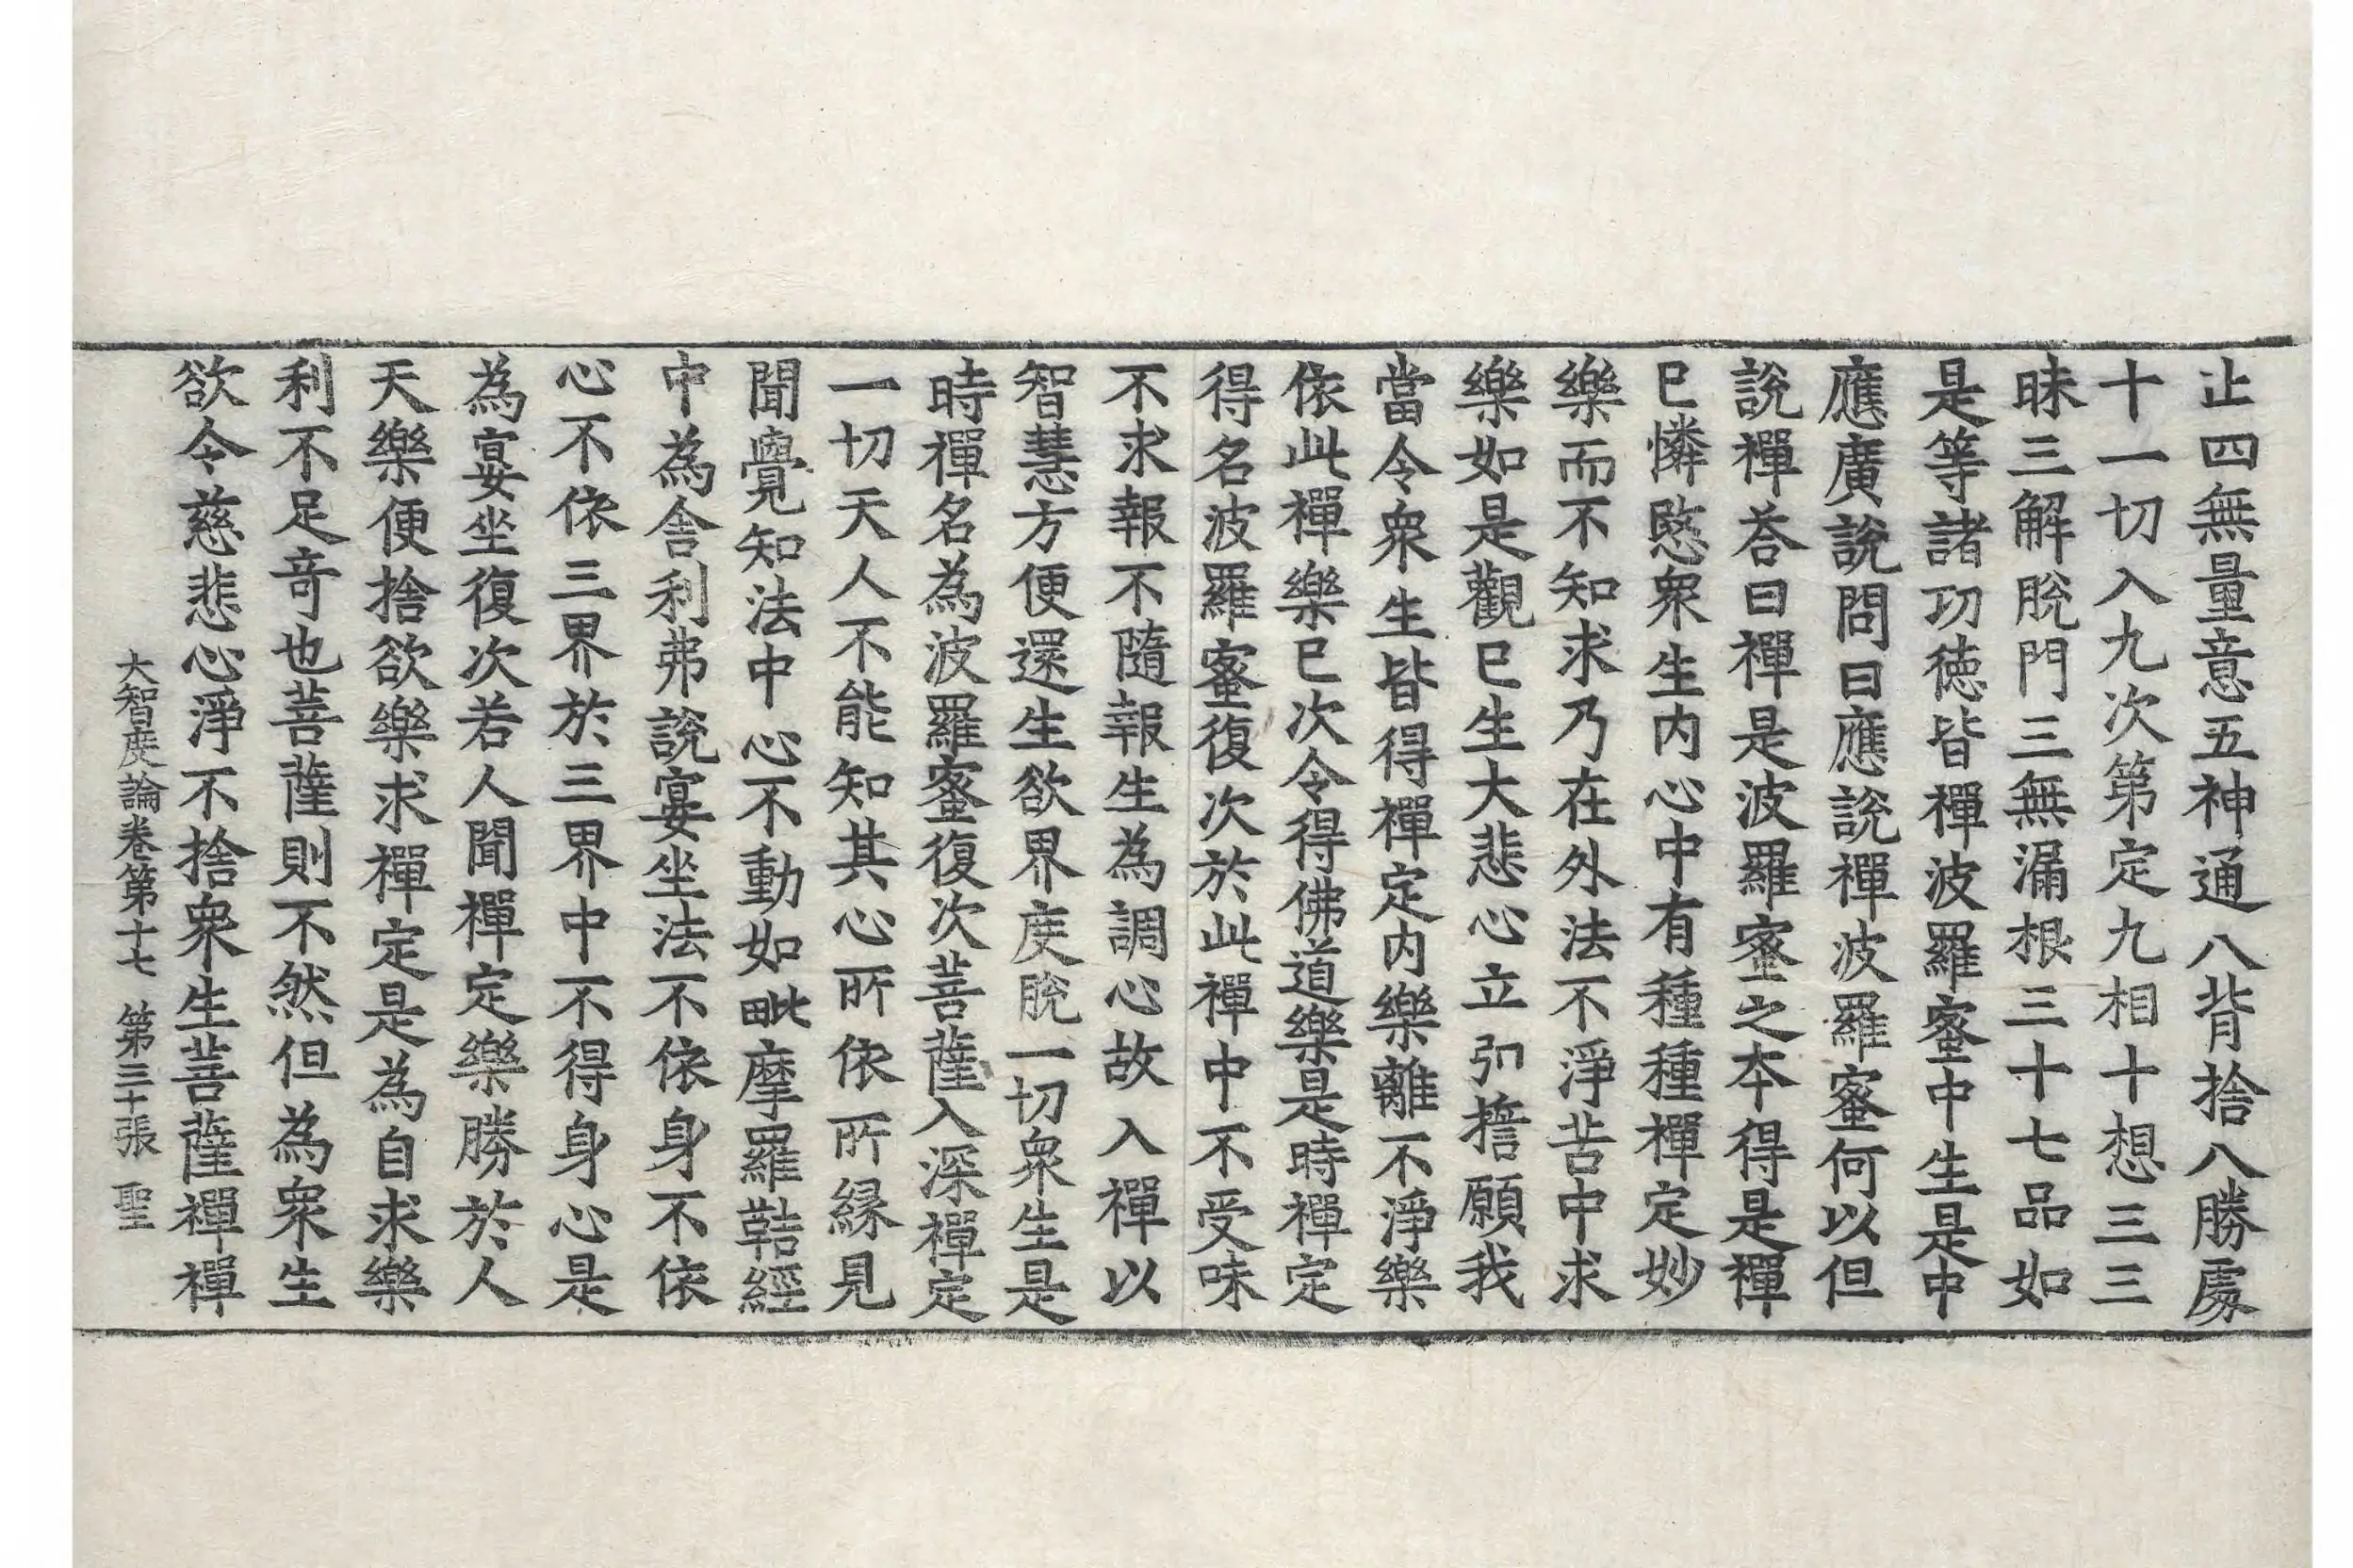 止四無量意五神通八背捨八勝處
十一切入九次第定九相十想三三
昧三解脫門三無漏根三十七品如
是等諸功德皆禪波羅蜜中生是中
應廣說問曰應說禪波羅蜜何以但
說禪荅曰禪是波羅蜜之本得是禪
已憐愍衆生內心中有種種禪定妙
樂而不知求乃在外法不淨苦中求
樂如是觀已生大悲心立引擔願我
當令衆生皆得禪定內樂離不淨樂
依此禪樂已次令得佛道樂是時禪定
得名波羅蜜復次於此禪中不受味
不求報不隨報生為調心故入禪以
智慧方便還生欲界度脫一切衆生是
時禪名為波羅蜜復次菩薩入深禪定
一切天人不能知其心所依所緣見
聞覺知法中心不動如毗摩羅鞊經
中為舍利弗說宴坐法不依身不依
心不依三界於三界中不得身心是
為宴坐復次若人聞禪定樂勝於人
天樂便捨欲樂求禪定是為自求樂
利不足竒也菩薩則不然但為衆生
欲令慈悲心淨不捨衆生菩薩禪禪
大智度論卷第十七 第三十張 聖